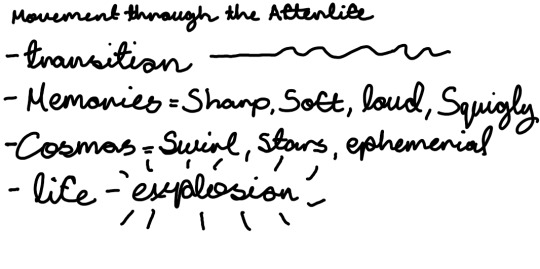 Movement through the Afterlife
- transition
- Memories = Sharp, Soft, loud, Squigly
- Cosmos = Swirl, Stars, ephemerial
- life - explosion